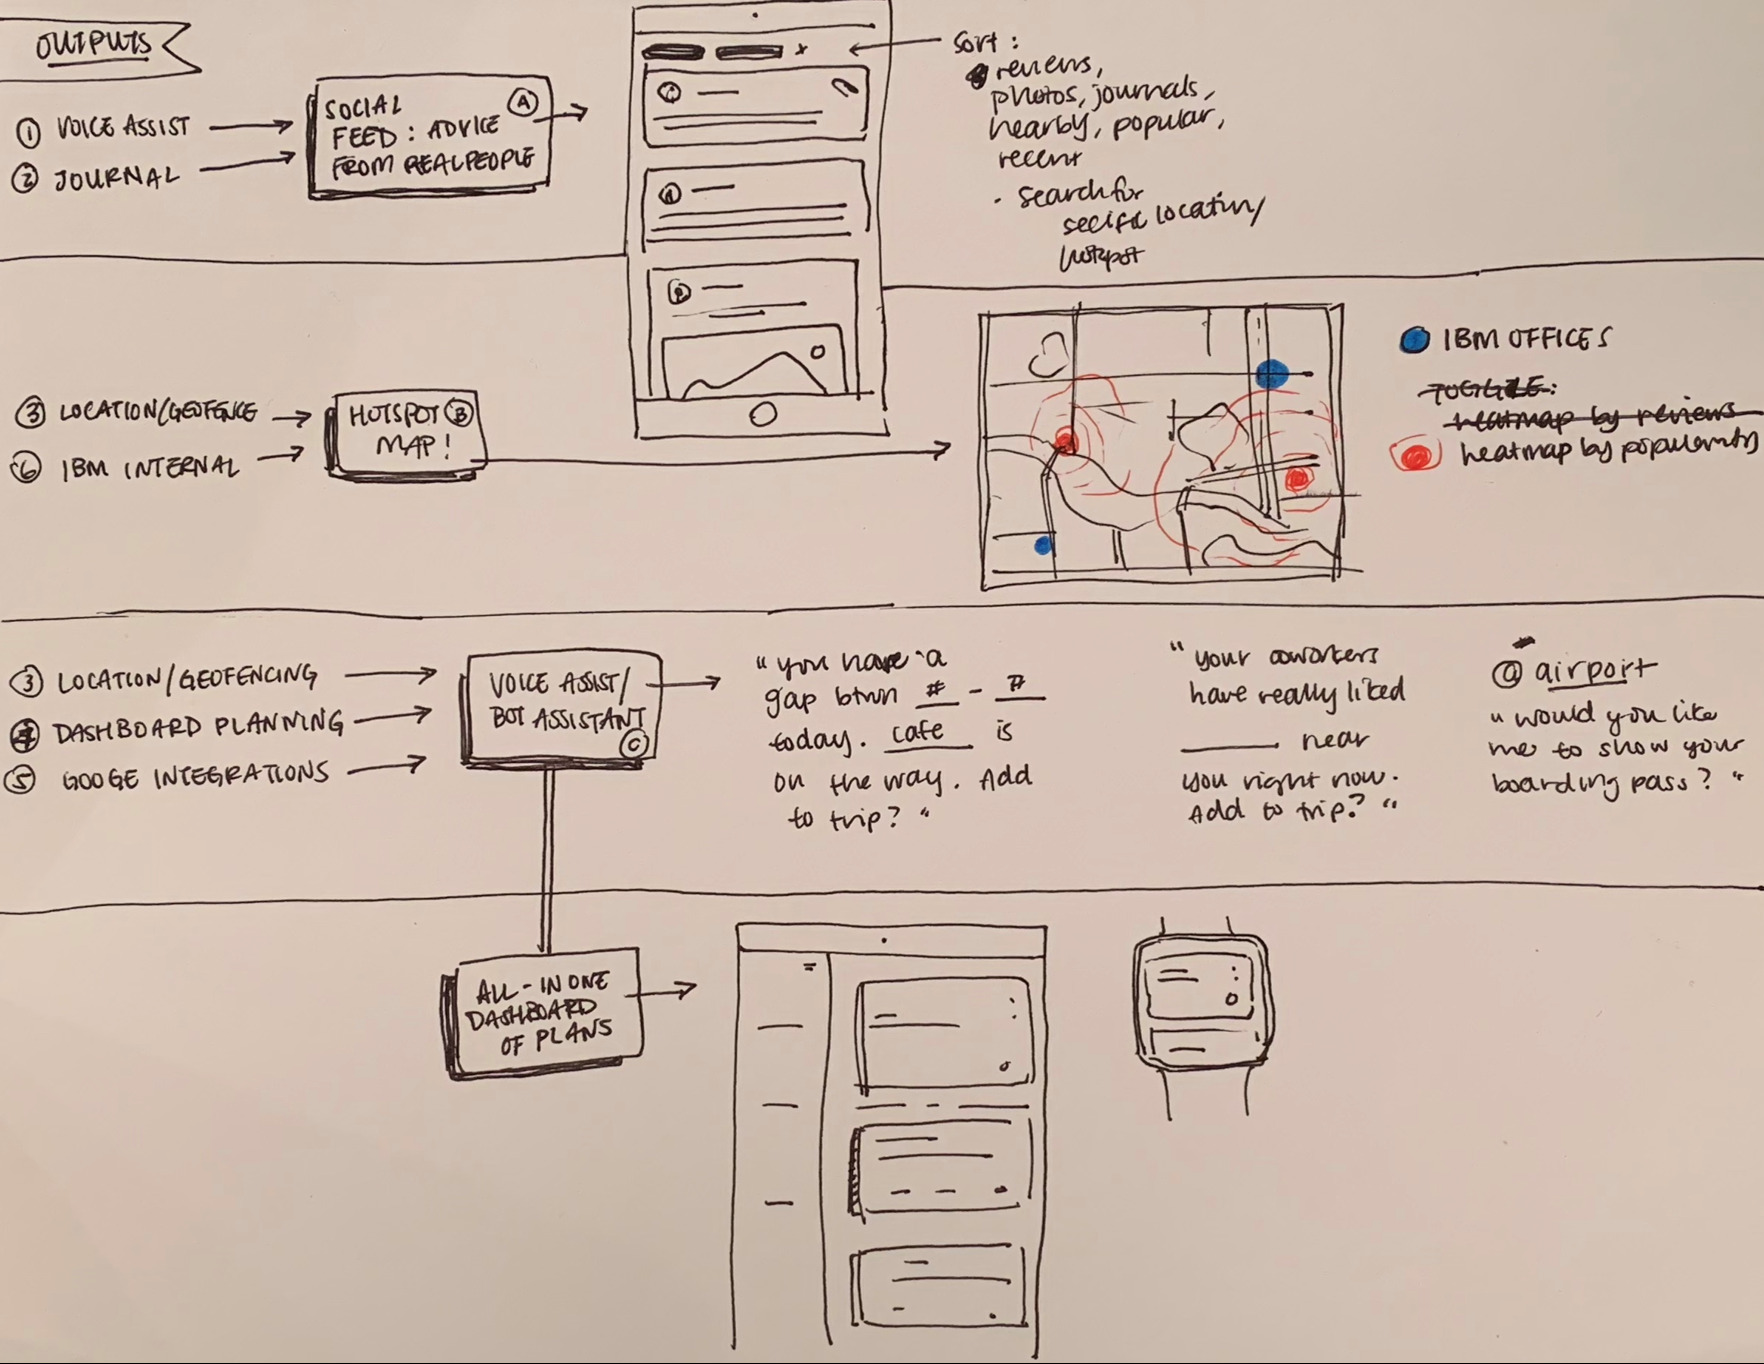 OUTPUTS
① VOICE ASSIST
② JOURNAL
SOCIAL Ⓐ
FEED: ADVICE
FROM REAL PEOPLE
Sort:
reviews,
photos, journals,
nearby, popular,
recent
· search for
secific locatin/
hotspot
③ LOCATION/GEOFENCE
⑥ IBM INTERNAL
HOTSPOT Ⓑ
MAP!
IBM OFFICES
TOGGLE:
heatmap by reviews
heatmap by popularity
③ LOCATION/GEOFENCING
④ DASHBOARD PLANNING
⑤ GOOGE INTEGRATIONS
VOICE ASSIST/
BOT ASSISTANT
Ⓒ
"you have a
gap btwn # - #
today. cafe is
on the way. Add
to trip?"
"your coworkers
have really liked
____ near
you right now.
Add to trip?"
@ airport
"would you like
me to show your
boarding pass?"
ALL-IN ONE
DASHBOARD
OF PLANS